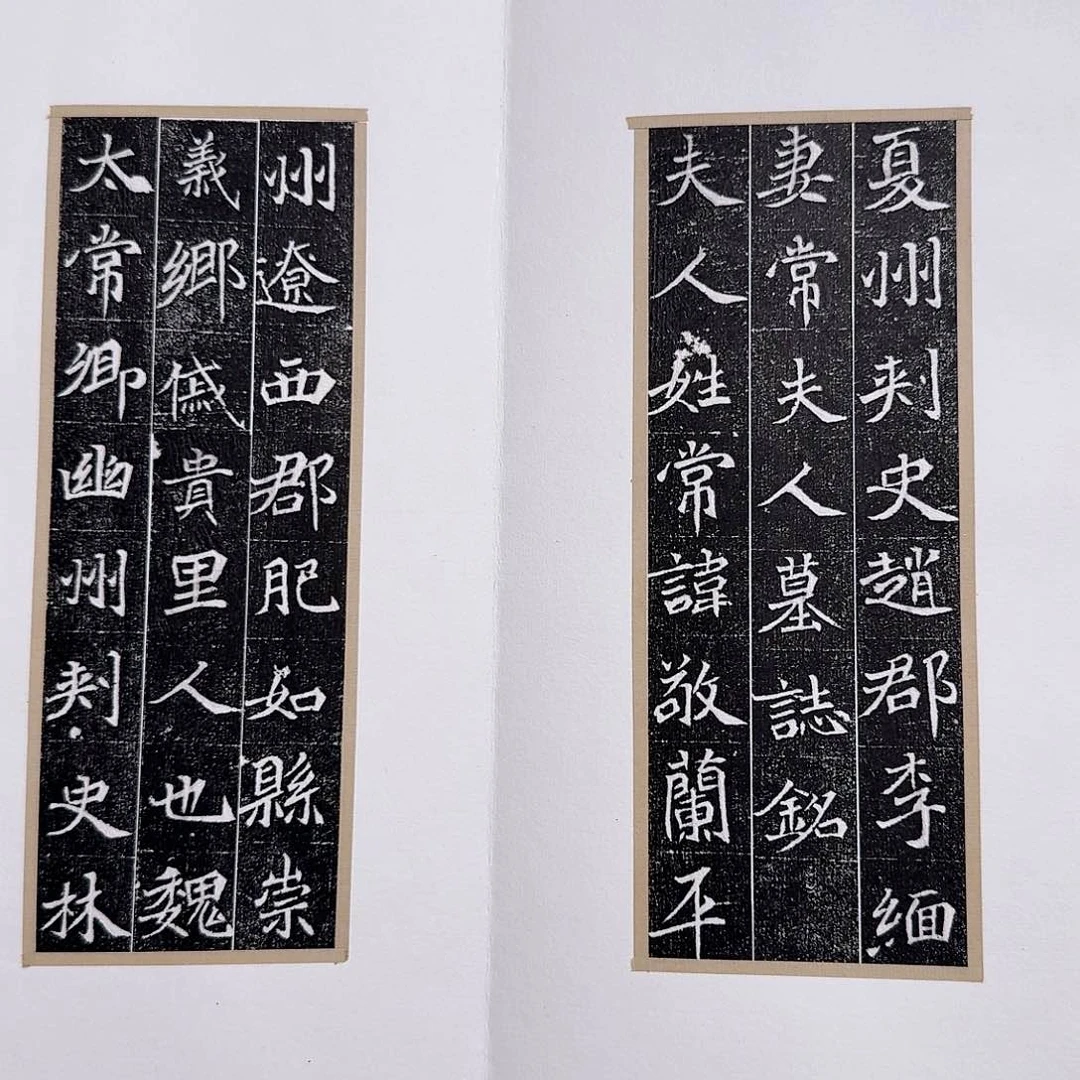 夏州刾史趙郡李緬
妻常夫人墓誌銘
夫人姓常諱敬蘭平
州遼西郡肥如縣崇
義鄉貴里人也魏
太常卿幽州刾史林